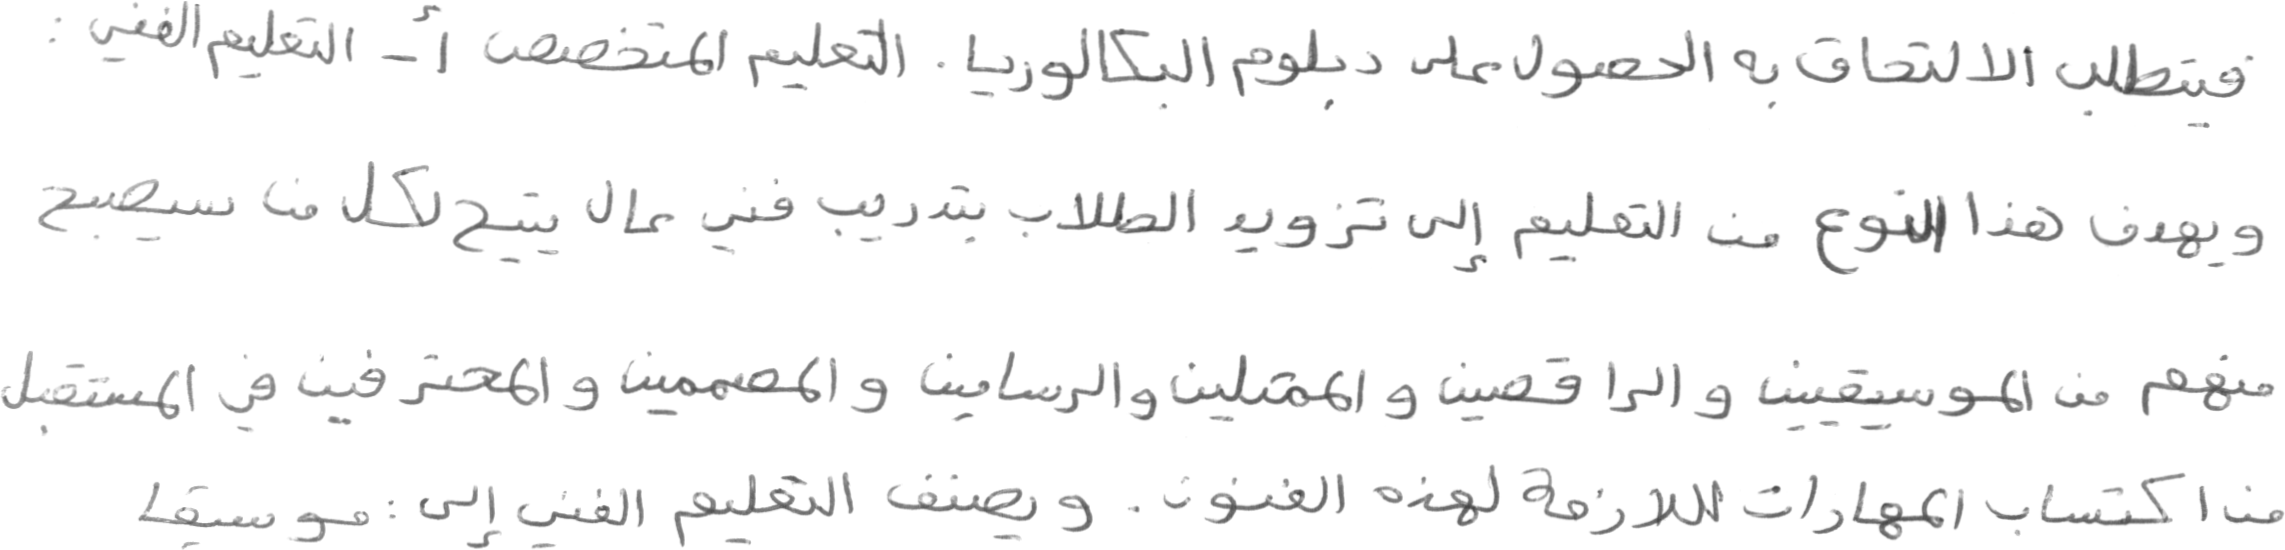 فيتطلب الالتحاق به الحصول على دبلوم البكالوريا. التعليم المتخصص أ- التعليم الفني :
ويهدف هذا النوع من التعليم إلى تزويد الطلاب بتدريب فني عال يتيح لكل من سيصبح
منهم من الموسيقيين والراقصين والممثلين والرسامين والمصممين والمحترفين في المستقبل
من اكتساب المهارات اللازمة لهذه الفنون. ويصنف التعليم الفني إلى: موسيقا